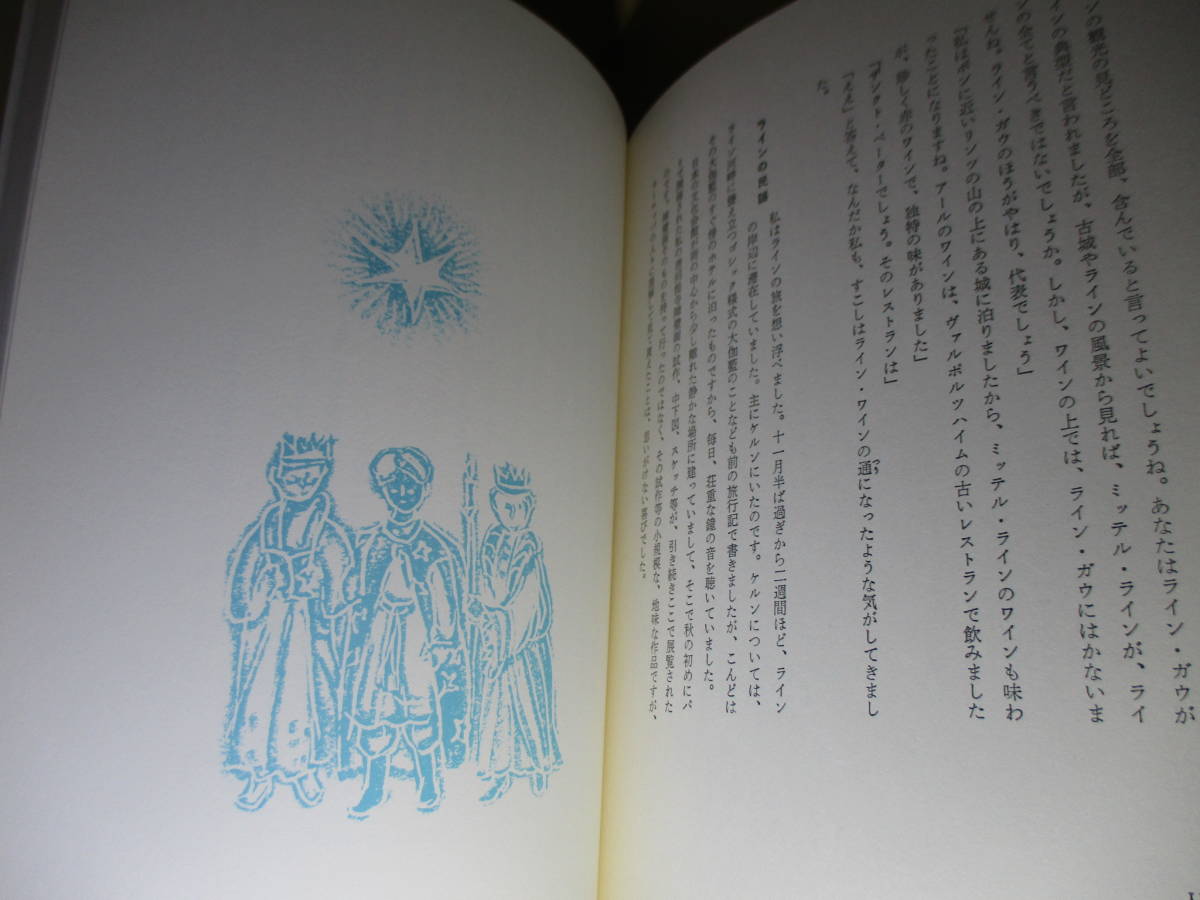 ンの観光の見どころを全部、含んでいると言ってよいでしょうね。あなたはライン・ガウが
インの典型だと言われましたが、古城やラインの風景から見れば、ミッテル・ラインが、ライ
ンの全てと言うべきではないでしょうか。しかし、ワインの上では、ライン・ガウにはかないま
せんね。ライン・ガウのほうがやはり、代表でしょう」
「私はボンに近いリンツの山の上にある城に泊りましたから、ミッテル・ラインのワインも味わ
ったことになりますね。アールのワインは、ヴァルポルツハイムの古いレストランで飲みました
が、珍しく赤のワインで、独特の味がありました」
「ザンクト・ペーターでしょう。そのレストランは」
「ええ」と答えて、なんだか私も、すこしはライン・ワインの通になったような気がしてきまし
つう
た。
ラインの民謡
私はラインの旅を想い浮べました。十一月半ば過ぎから二週間ほど、ライン
の岸辺に滞在していました。主にケルンにいたのです。ケルンについては、
ライン河畔に聳え立つゴシック様式の大伽藍のことなども前の旅行記で書きましたが、こんどは
その大伽藍のすぐ傍のホテルに泊ったものですから、毎日、荘重な鐘の音を聴いていました。
日本の文化会館が街の中心から少し離れた静かな場所に建っていまして、そこで秋の初めにパ
リで開催された私の唐招提寺障壁画の試作、中下図、スケッチ等が、引き続きここで展覧された
のです。障壁画そのものを持って行ったのではなく、その試作等の小規模な、地味な作品ですが、
ヨーロッパの人々と理解して見て貰えたことは、思いがけない喜びでした。